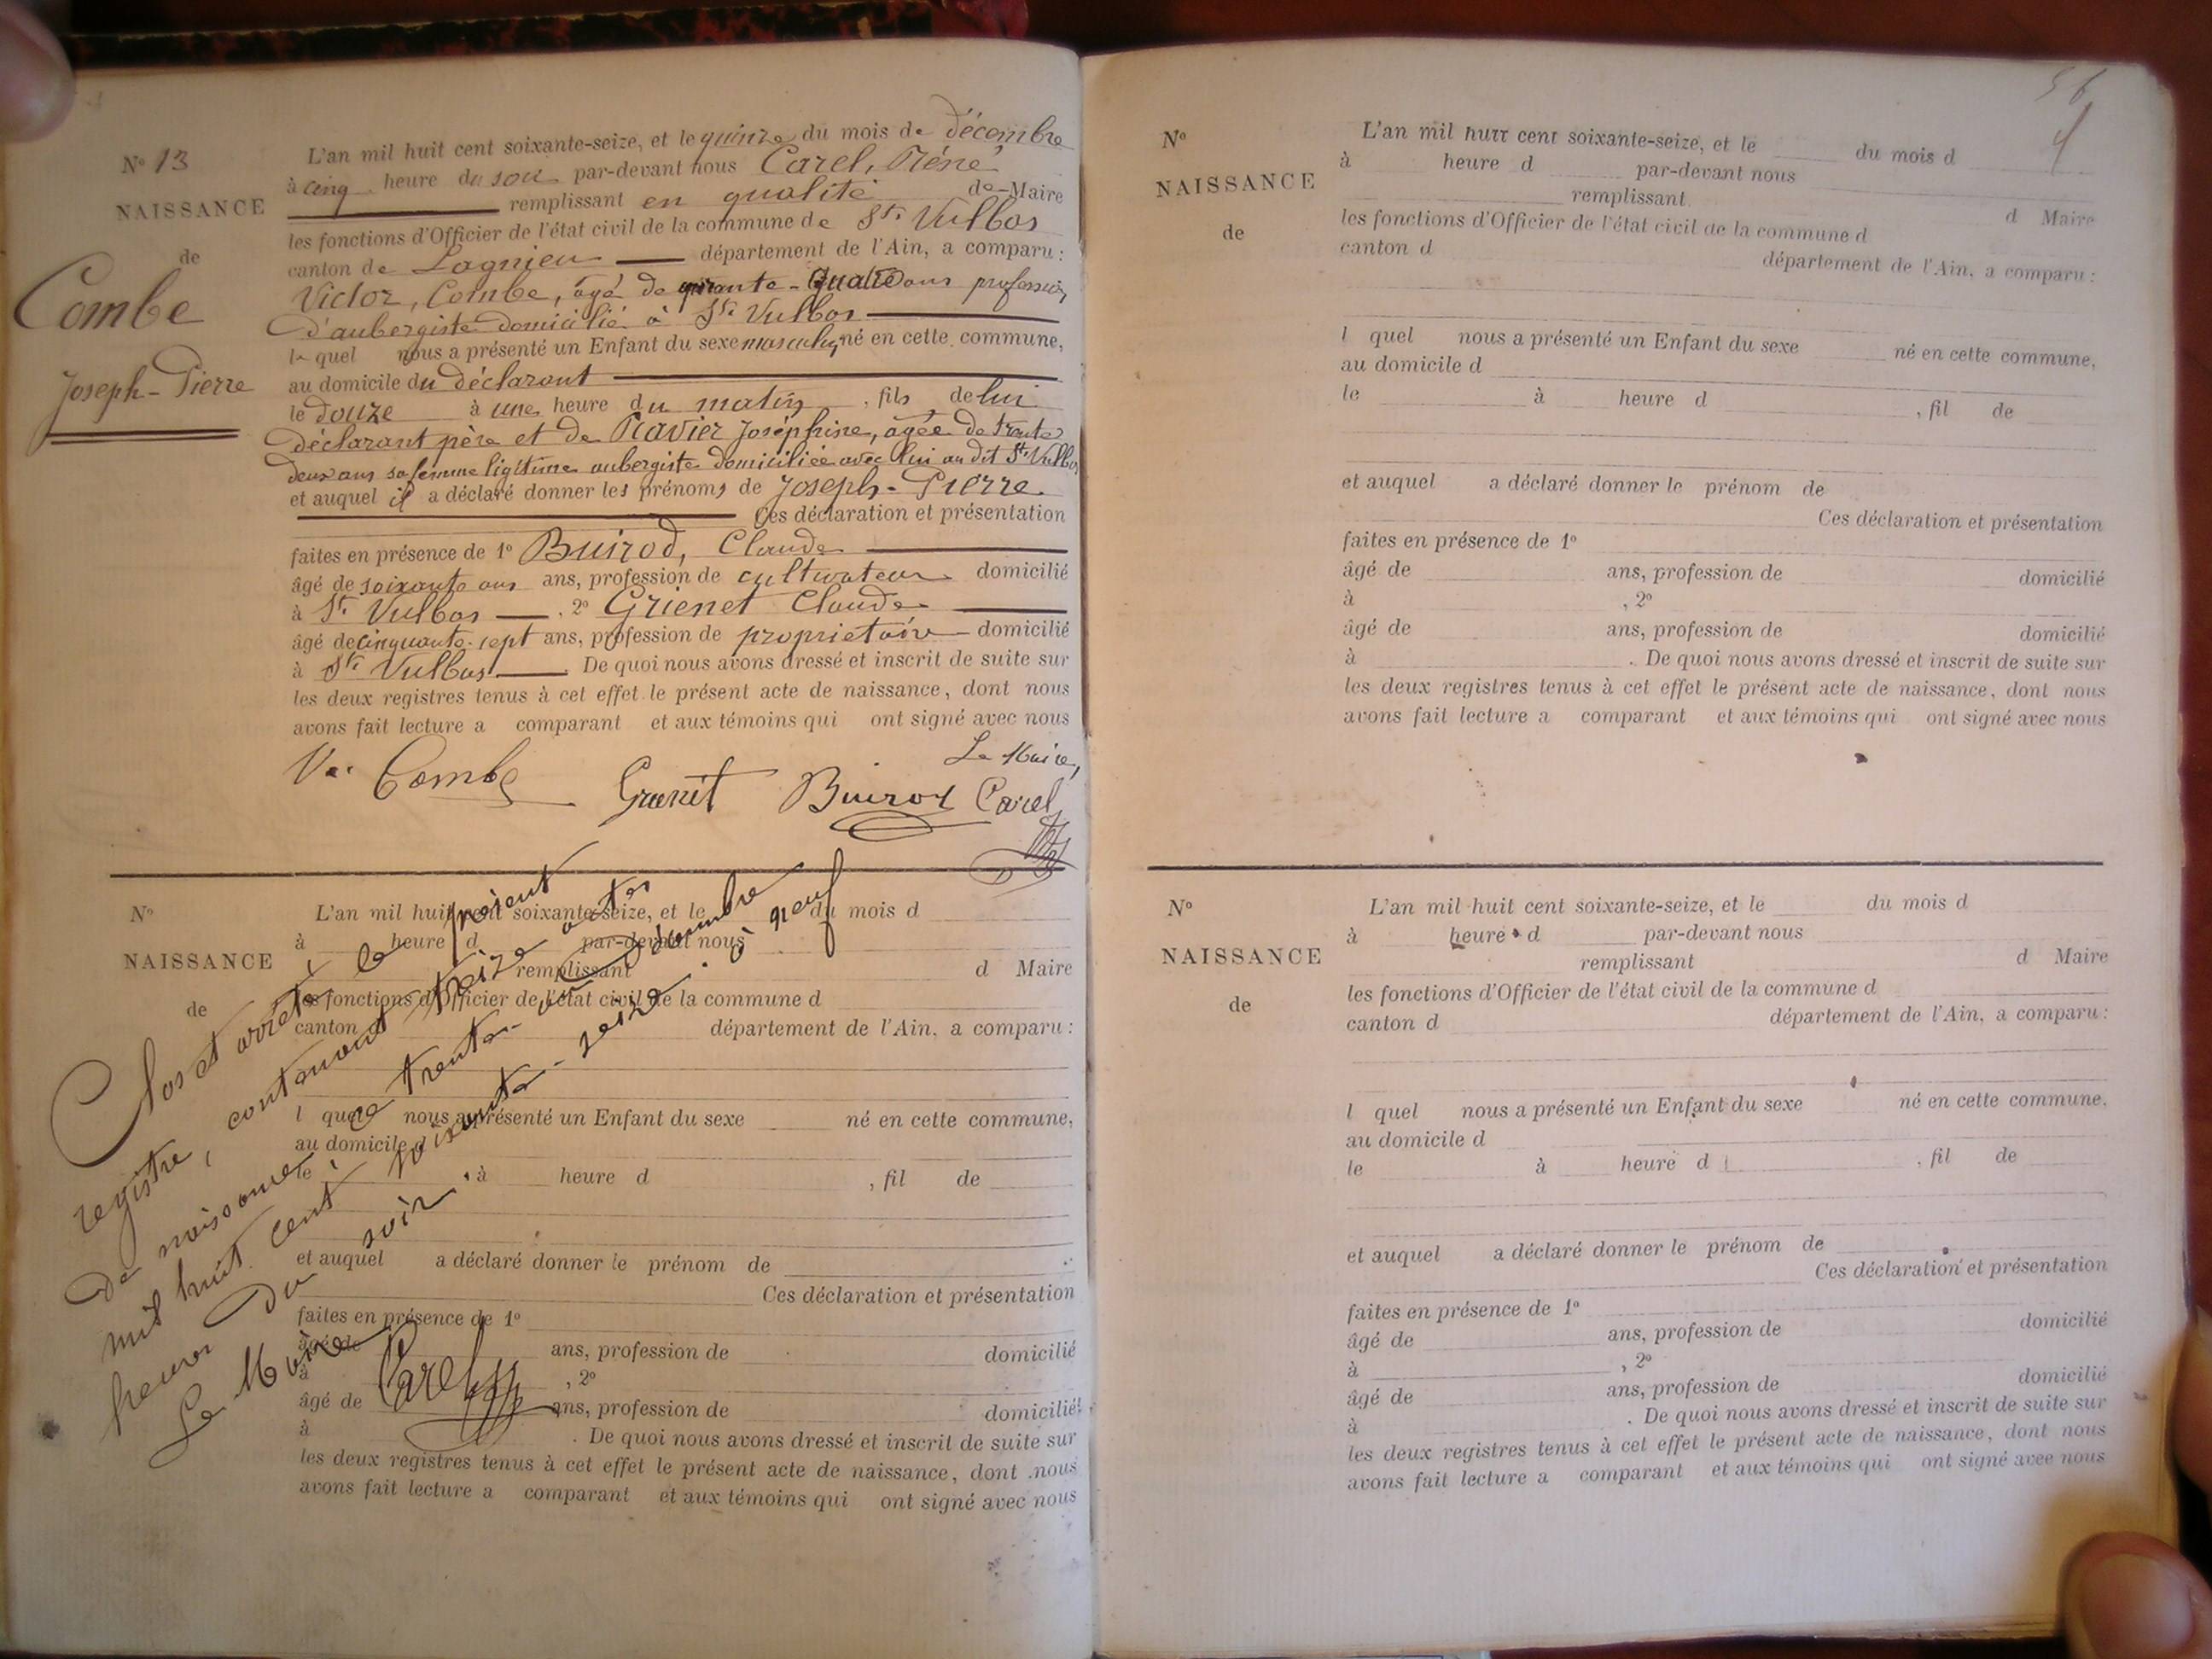 N° 13
NAISSANCE
de
Combe
Joseph-Pierre
L'an mil huit cent soixante-seize, et le quinze du mois de décembre
à cinq heure du soir par-devant nous Carel, Réné
remplissant en qualité de Maire
les fonctions d'Officier de l'état civil de la commune de St. Vulbas
canton de Lagnieu département de l'Ain, a comparu :
Victor, Combe, âgé de ans profession
d'aubergiste domicilié à St. Vulbas
le quel nous a présenté un Enfant du sexe masculin né en cette commune,
au domicile du déclarant
le douze à une heure du matin, fils de lui
déclarant père et de Ravier Joséphine, agée de trente
deux ans sa femme ligitime aubergiste domiciliée avec lui au dit St. Vulbas
et auquel il a déclaré donner les prénoms de Joseph-Pierre
Ces déclaration et présentation
faites en présence de 1° Buirod, Claude
âgé de soixante ans ans, profession de cultivateur domicilié
à St. Vulbas, 2° Grienet Claude
âgé de cinquante-sept ans, profession de proprietaire domicilié
à St. Vulbas. De quoi nous avons dressé et inscrit de suite sur
les deux registres tenus à cet effet le présent acte de naissance, dont nous
avons fait lecture a comparant et aux témoins qui ont signé avec nous
Le Maire,
Vor Combe Grienet Buirod Carel
N°
NAISSANCE
de
L'an mil huit cent soixante-seize, et le du mois d
à heure d par-devant nous
remplissant d Maire
les fonctions d'Officier de l'état civil de la commune d
canton d département de l'Ain, a comparu :
l quel nous a présenté un Enfant du sexe né en cette commune,
au domicile d
le à heure d , fil de
et auquel a déclaré donner le prénom de
Ces déclaration et présentation
faites en présence de 1°
âgé de ans, profession de domicilié
à , 2°
âgé de ans, profession de domicilié
à . De quoi nous avons dressé et inscrit de suite sur
les deux registres tenus à cet effet le présent acte de naissance, dont nous
avons fait lecture a comparant et aux témoins qui ont signé avec nous
Clos et arrêté le présent
registre, contenant treize actes
de naissance, le trente-un décembre
mil huit cent soixante-seize à neuf
heures du soir.
Le Maire
Carel
56
N°
NAISSANCE
de
L'an mil huit cent soixante-seize, et le du mois d
à heure d par-devant nous
remplissant d Maire
les fonctions d'Officier de l'état civil de la commune d
canton d département de l'Ain, a comparu :
l quel nous a présenté un Enfant du sexe né en cette commune,
au domicile d
le à heure d , fil de
et auquel a déclaré donner le prénom de
Ces déclaration et présentation
faites en présence de 1°
âgé de ans, profession de domicilié
à , 2°
âgé de ans, profession de domicilié
à . De quoi nous avons dressé et inscrit de suite sur
les deux registres tenus à cet effet le présent acte de naissance, dont nous
avons fait lecture a comparant et aux témoins qui ont signé avec nous
N°
NAISSANCE
de
L'an mil huit cent soixante-seize, et le du mois d
à heure d par-devant nous
remplissant d Maire
les fonctions d'Officier de l'état civil de la commune d
canton d département de l'Ain, a comparu :
l quel nous a présenté un Enfant du sexe né en cette commune,
au domicile d
le à heure d , fil de
et auquel a déclaré donner le prénom de
Ces déclaration et présentation
faites en présence de 1°
âgé de ans, profession de domicilié
à , 2°
âgé de ans, profession de domicilié
à . De quoi nous avons dressé et inscrit de suite sur
les deux registres tenus à cet effet le présent acte de naissance, dont nous
avons fait lecture a comparant et aux témoins qui ont signé avec nous